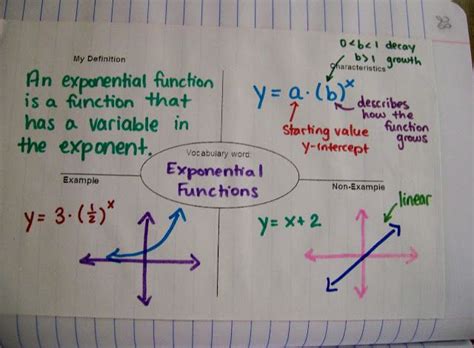 83
My Definition
An exponential function
is a function that
has a variable in
the exponent.
0<b<1 decay
b>1 growth
Characteristics
y = a · (b)ˣ
describes
how the
function
grows
Starting value
y-intercept
Vocabulary word:
Exponential
Functions
Example
y = 3 · (½)ˣ
Non-Example
linear
y = x + 2